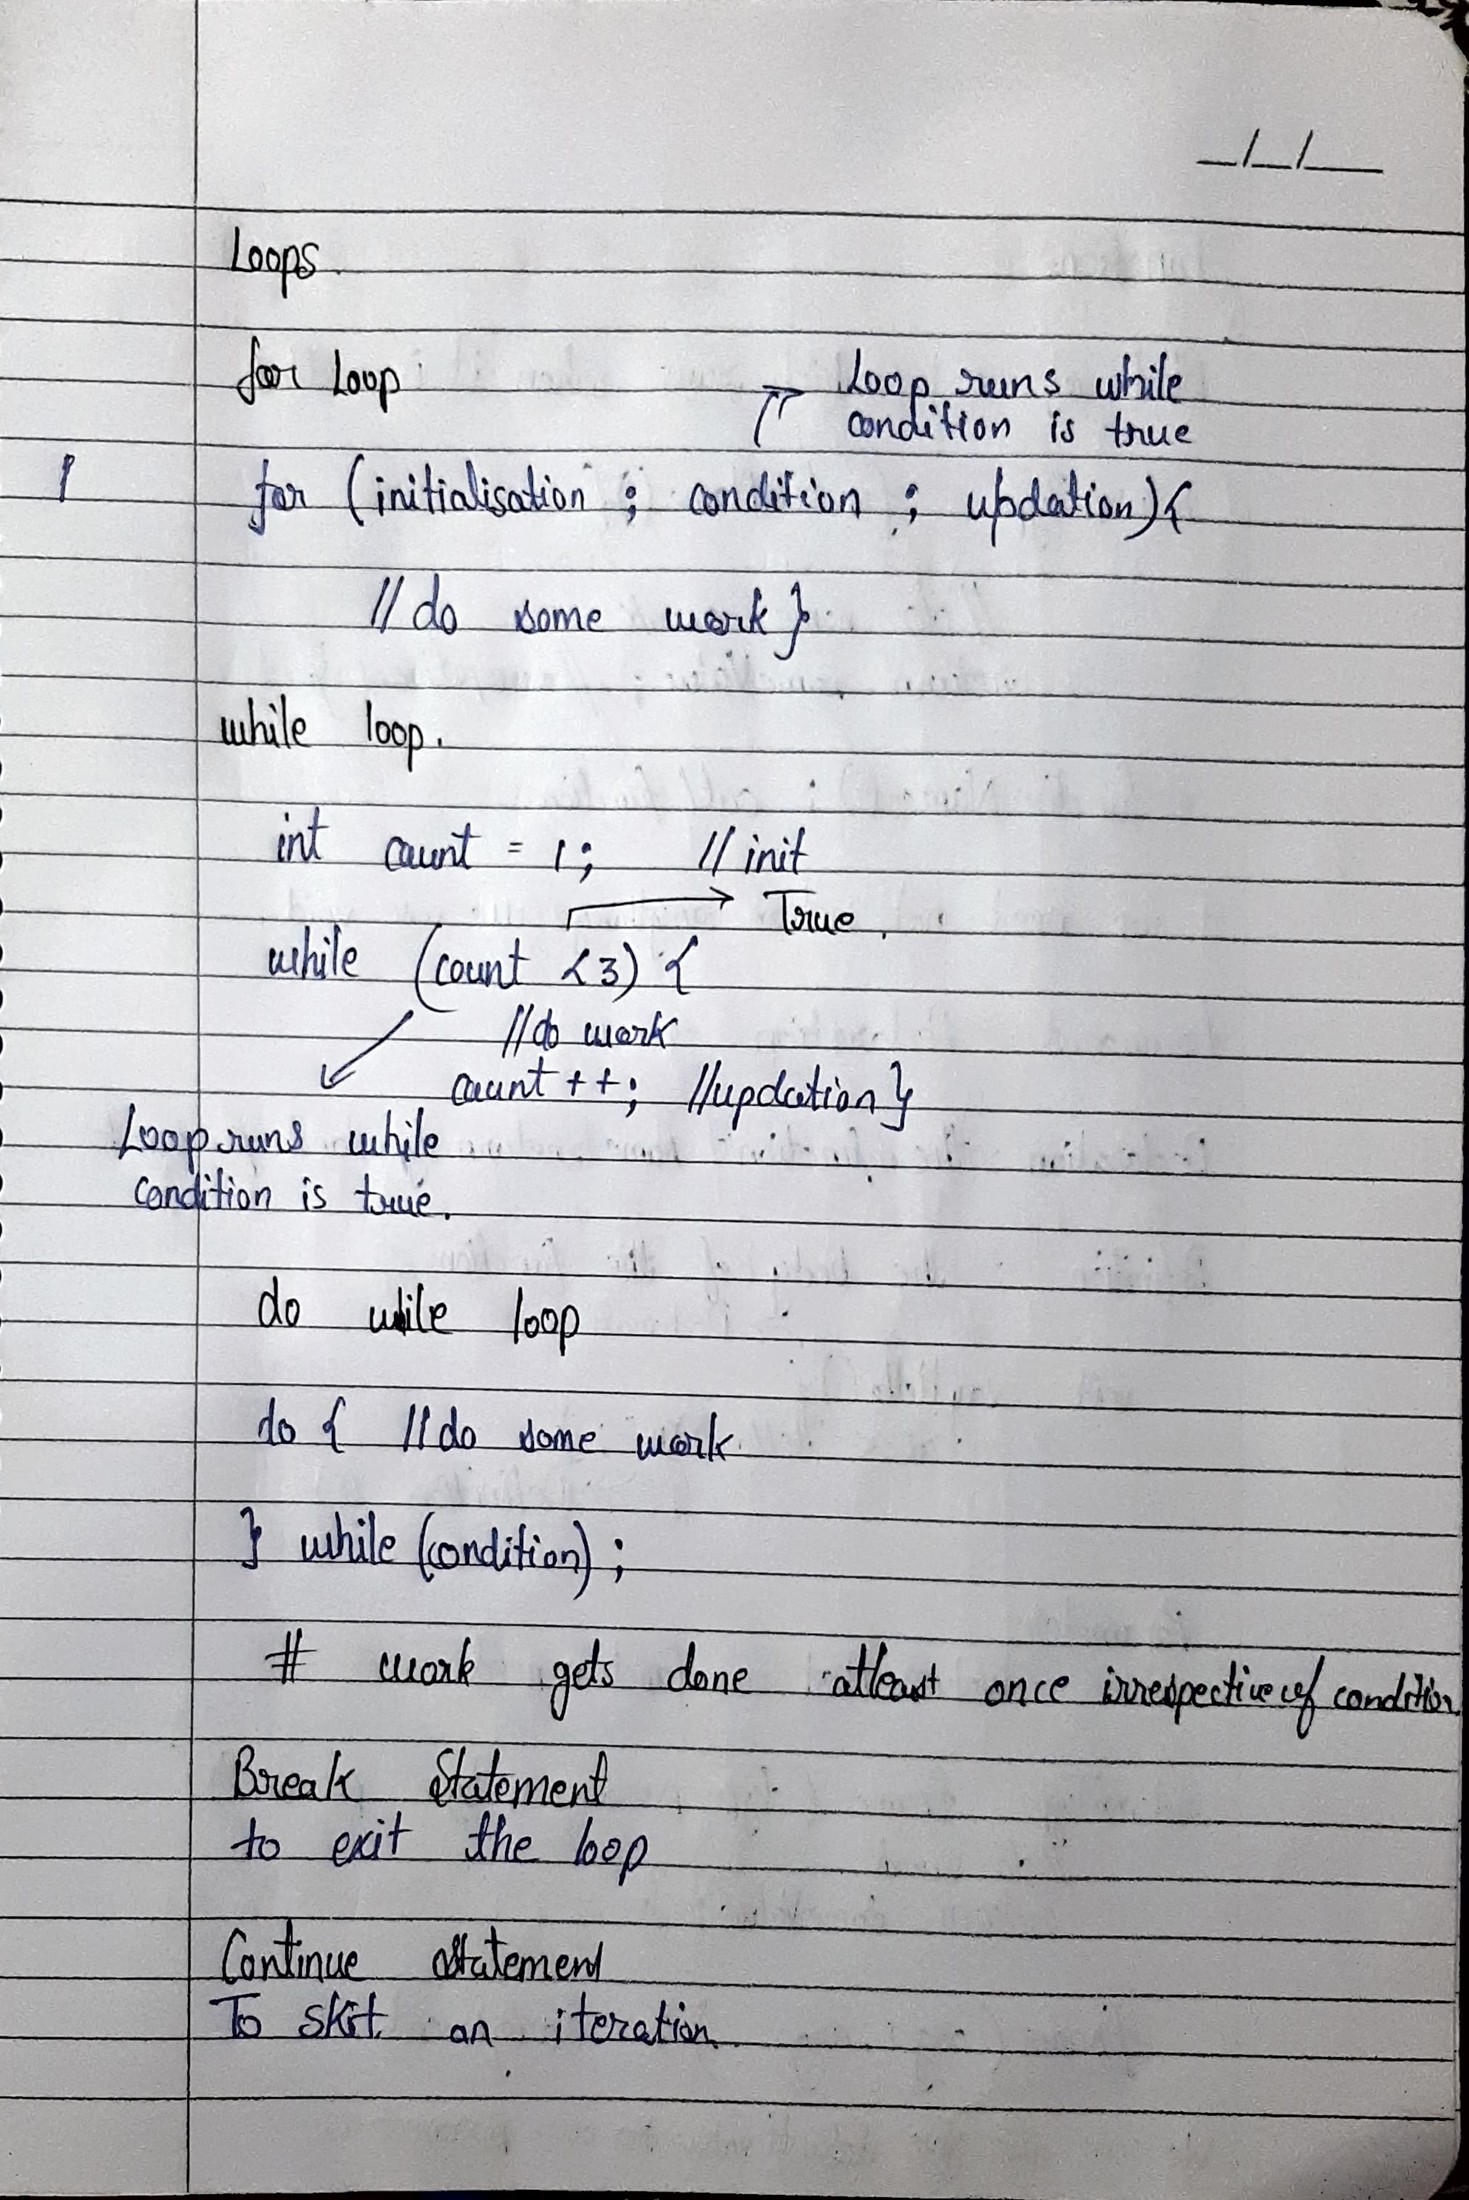 _/_/__
Loops.
for Loop
Loop runs while
condition is true
for (initialisation ; condition ; updation){
// do some work }
while loop.
int count = 1; // init
True.
while (count < 3) {
// do work
count ++; //updation }
Loop runs while
condition is true.
do while loop
do { // do some work
} while (condition) ;
# work gets done atleast once irrespective of condition
Break Statement
to exit the loop
Continue statement
To skit an iteration.